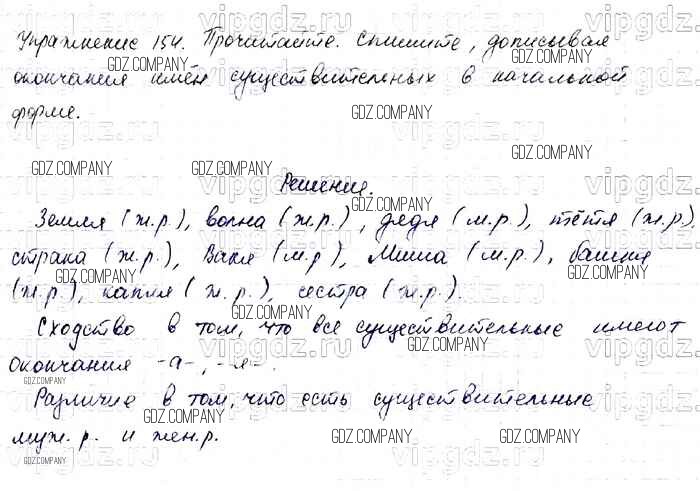 Упражнение 154. Прочитайте. Спишите, дописывая
окончания имён существительных в начальной
форме.
Решение.
Земля (ж.р.), волна (ж.р.), дядя (м.р.), тётя (ж.р.),
страна (ж.р.), Ваня (м.р), Миша (м.р.), башня
(ж.р.), капля (ж.р.), сестра (ж.р.).
Сходство в том, что все существительные имеют
окончания -а-, -я-.
Различие в том, что есть существительные
муж.р. и жен.р.